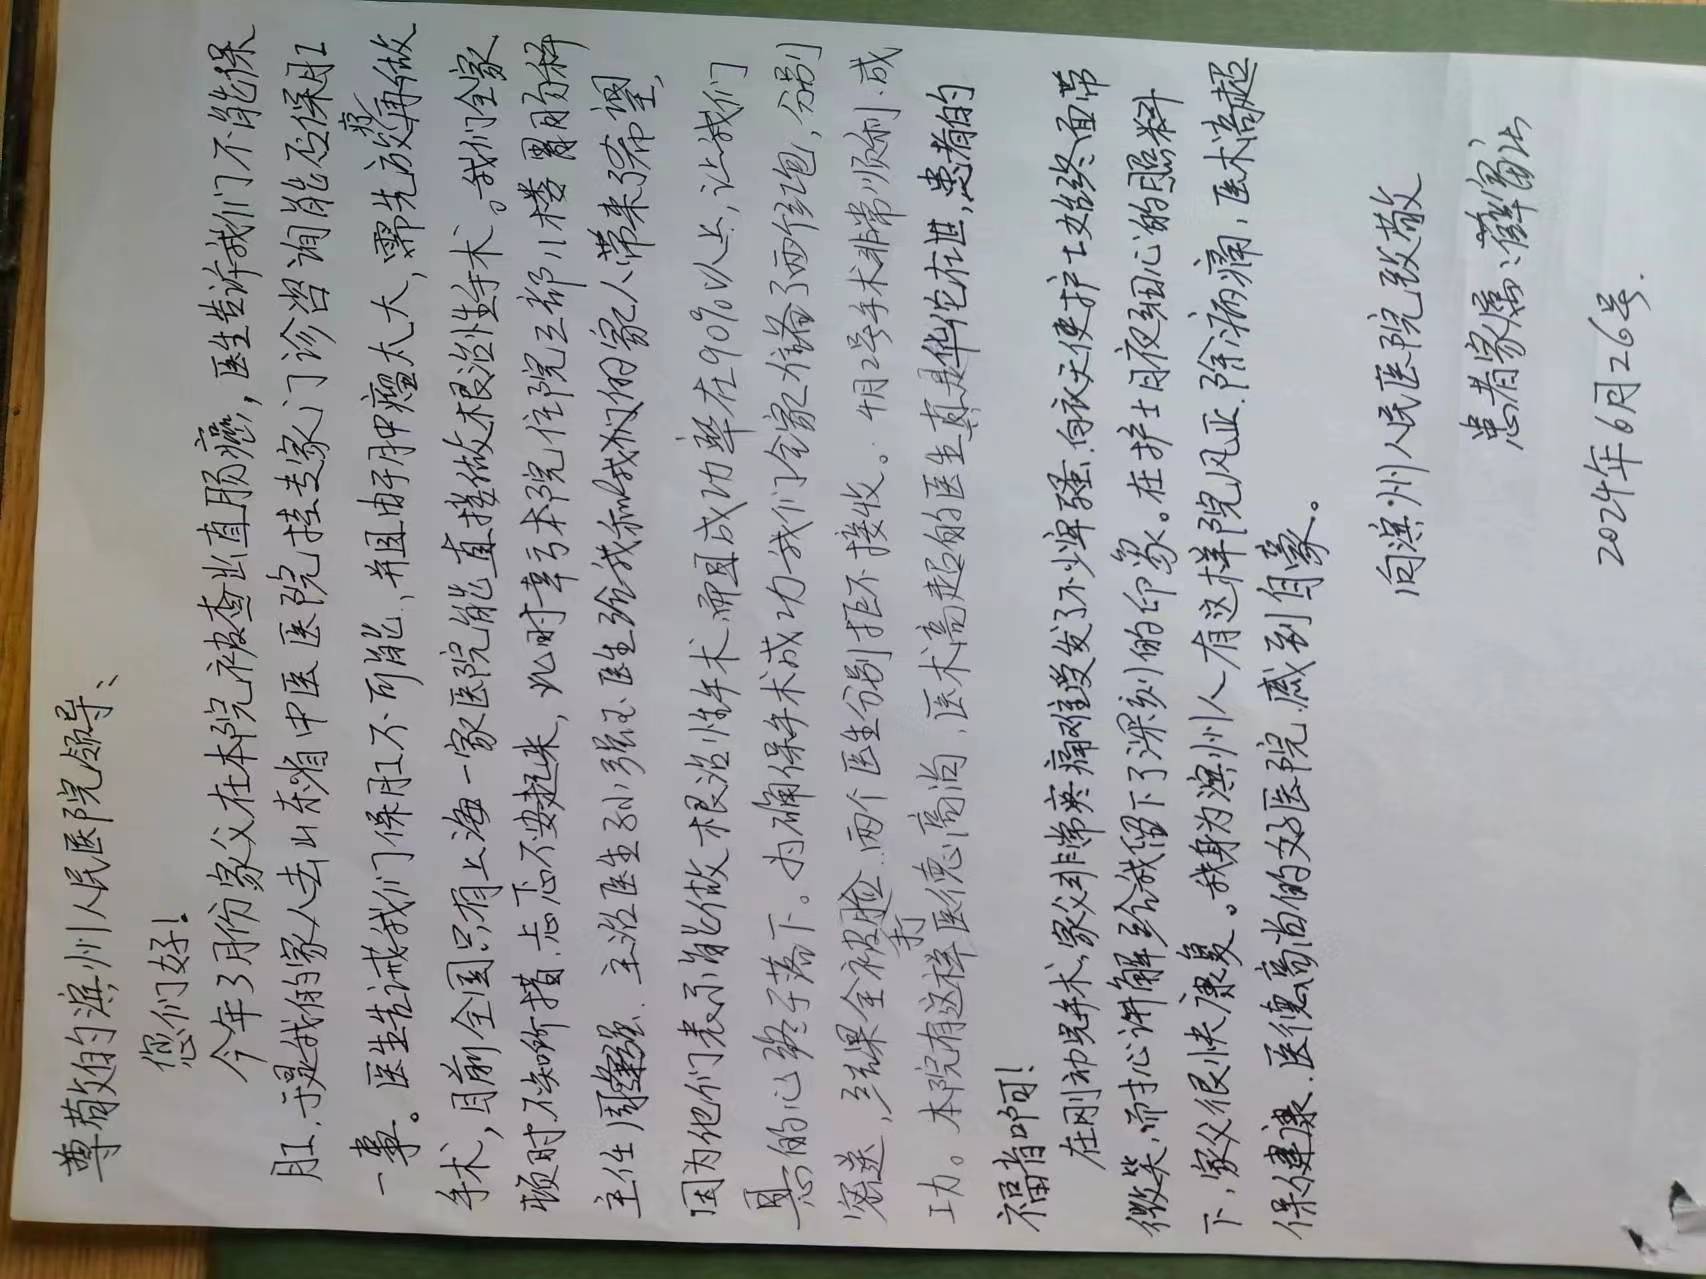 尊敬的滨州人民医院领导：
您们好！
今年3月份家父在本院被查出直肠癌，医生告诉我们不能保
肛，于是我的家人去山东省中医医院挂专家门诊咨询能否保肛
一事。医生告诫我们保肛不可能，并且由于肿瘤太大，需先放疗再做
手术，目前全国只有上海一家医院能直接做根治性手术。我们全家
顿时不知所措、忐忑不安起来，此时幸亏本院住院三部11楼胃肠科
主任周 强、主治医生孙强玉医生给我和我们的家人带来了希望，
因为他们表示能做根治性手术，而且成功率在90%以上，让我们
悬的心终于落下。为确保手术成功我们全家准备了两个红包，分别
密送，结果全被打脸，两个医生分别拒不接收。4月2号手术非常顺利、成
功。本院有这样医德高尚、医术高超的医生真是华佗在世，患者的
福音啊！
在刚动完手术，家父非常疼痛难受发了不少牢骚，白衣天使护士始终面带
微笑，耐心讲解给我留下了深刻的印象。在护士日夜细心的照料
下，家父很快康复。我身为滨州人有这样院风正、除病痛，医术高超
保健康、医德高尚的好医院，感到自豪。
向滨州人民医院致敬
患者家属：薛富
2024年6月26号.